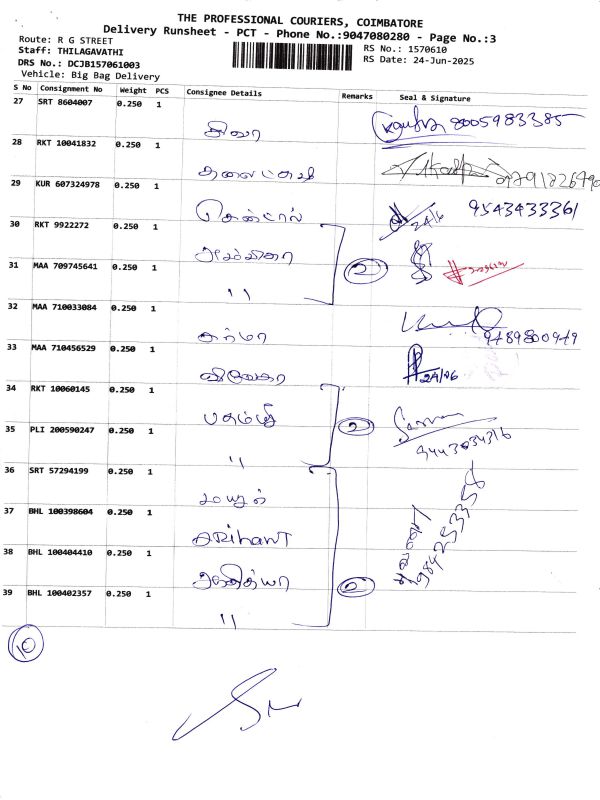 THE PROFESSIONAL COURIERS, COIMBATORE
Delivery Runsheet - PCT - Phone No.:9047080280 - Page No.:3
Route: R G STREET
Staff: THILAGAVATHI
DRS No.: DCJB157061003
Vehicle: Big Bag Delivery
RS No.: 1570610
RS Date: 24-Jun-2025
S No Consignment No Weight PCS Consignee Details Remarks Seal & Signature
27 SRT 8604007 0.250 1 8005983385
28 RKT 10041832 0.250 1
29 KUR 607324978 0.250 1 சென்ட்ரல் 24/6 9543433361
30 RKT 9922272 0.250 1
31 MAA 709745641 0.250 1 11 2
32 MAA 710033084 0.250 1 சர்மா 9789800949
33 MAA 710456529 0.250 1 24/06
34 RKT 10060145 0.250 1
35 PLI 200590247 0.250 1 11 2 9443034316
36 SRT 57294199 0.250 1
37 BHL 100398604 0.250 1 ARihanT
38 BHL 100404410 0.250 1 2 9842533358
39 BHL 100402357 0.250 1 11
10